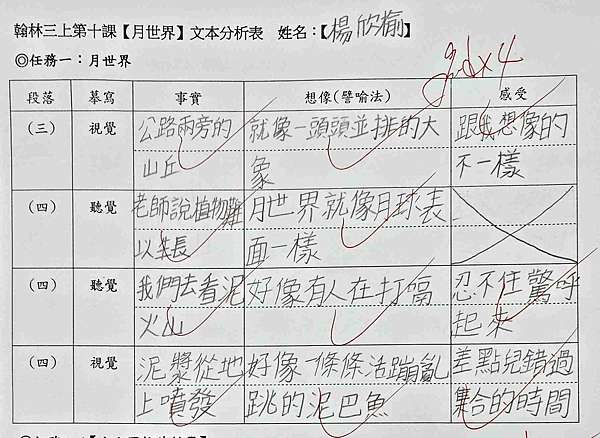 翰林三上第十課【月世界】文本分析表 姓名：【楊欣榆】
gd x4
◎任務一：月世界
段落 摹寫 事實 想像(譬喻法) 感受
(三) 視覺 公路兩旁的山丘 就像一頭頭並排的大象 跟我想像的不一樣
(四) 聽覺 老師說植物難以生長 月世界就像月球表面一樣
(四) 聽覺 我們去看泥火山 好像有人在打嗝 忍不住驚呼起來
(四) 視覺 泥漿從地上噴發 好像一條條活蹦亂跳的泥巴魚 差點兒錯過集合的時間